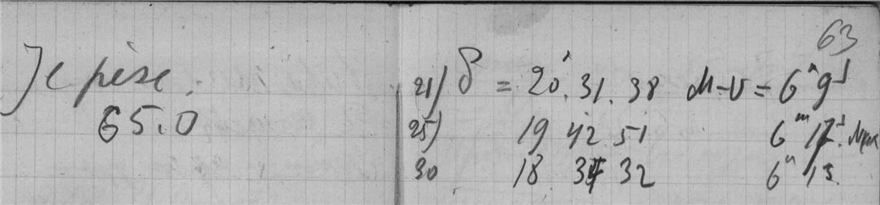 Je pèse
65.0
63
21) δ = 20°.31.38 M-V = 6ᵐ 9ˢ
25) 19 42 51 6ᵐ 12ˢ
30 18 34 32 6ᵐ 13